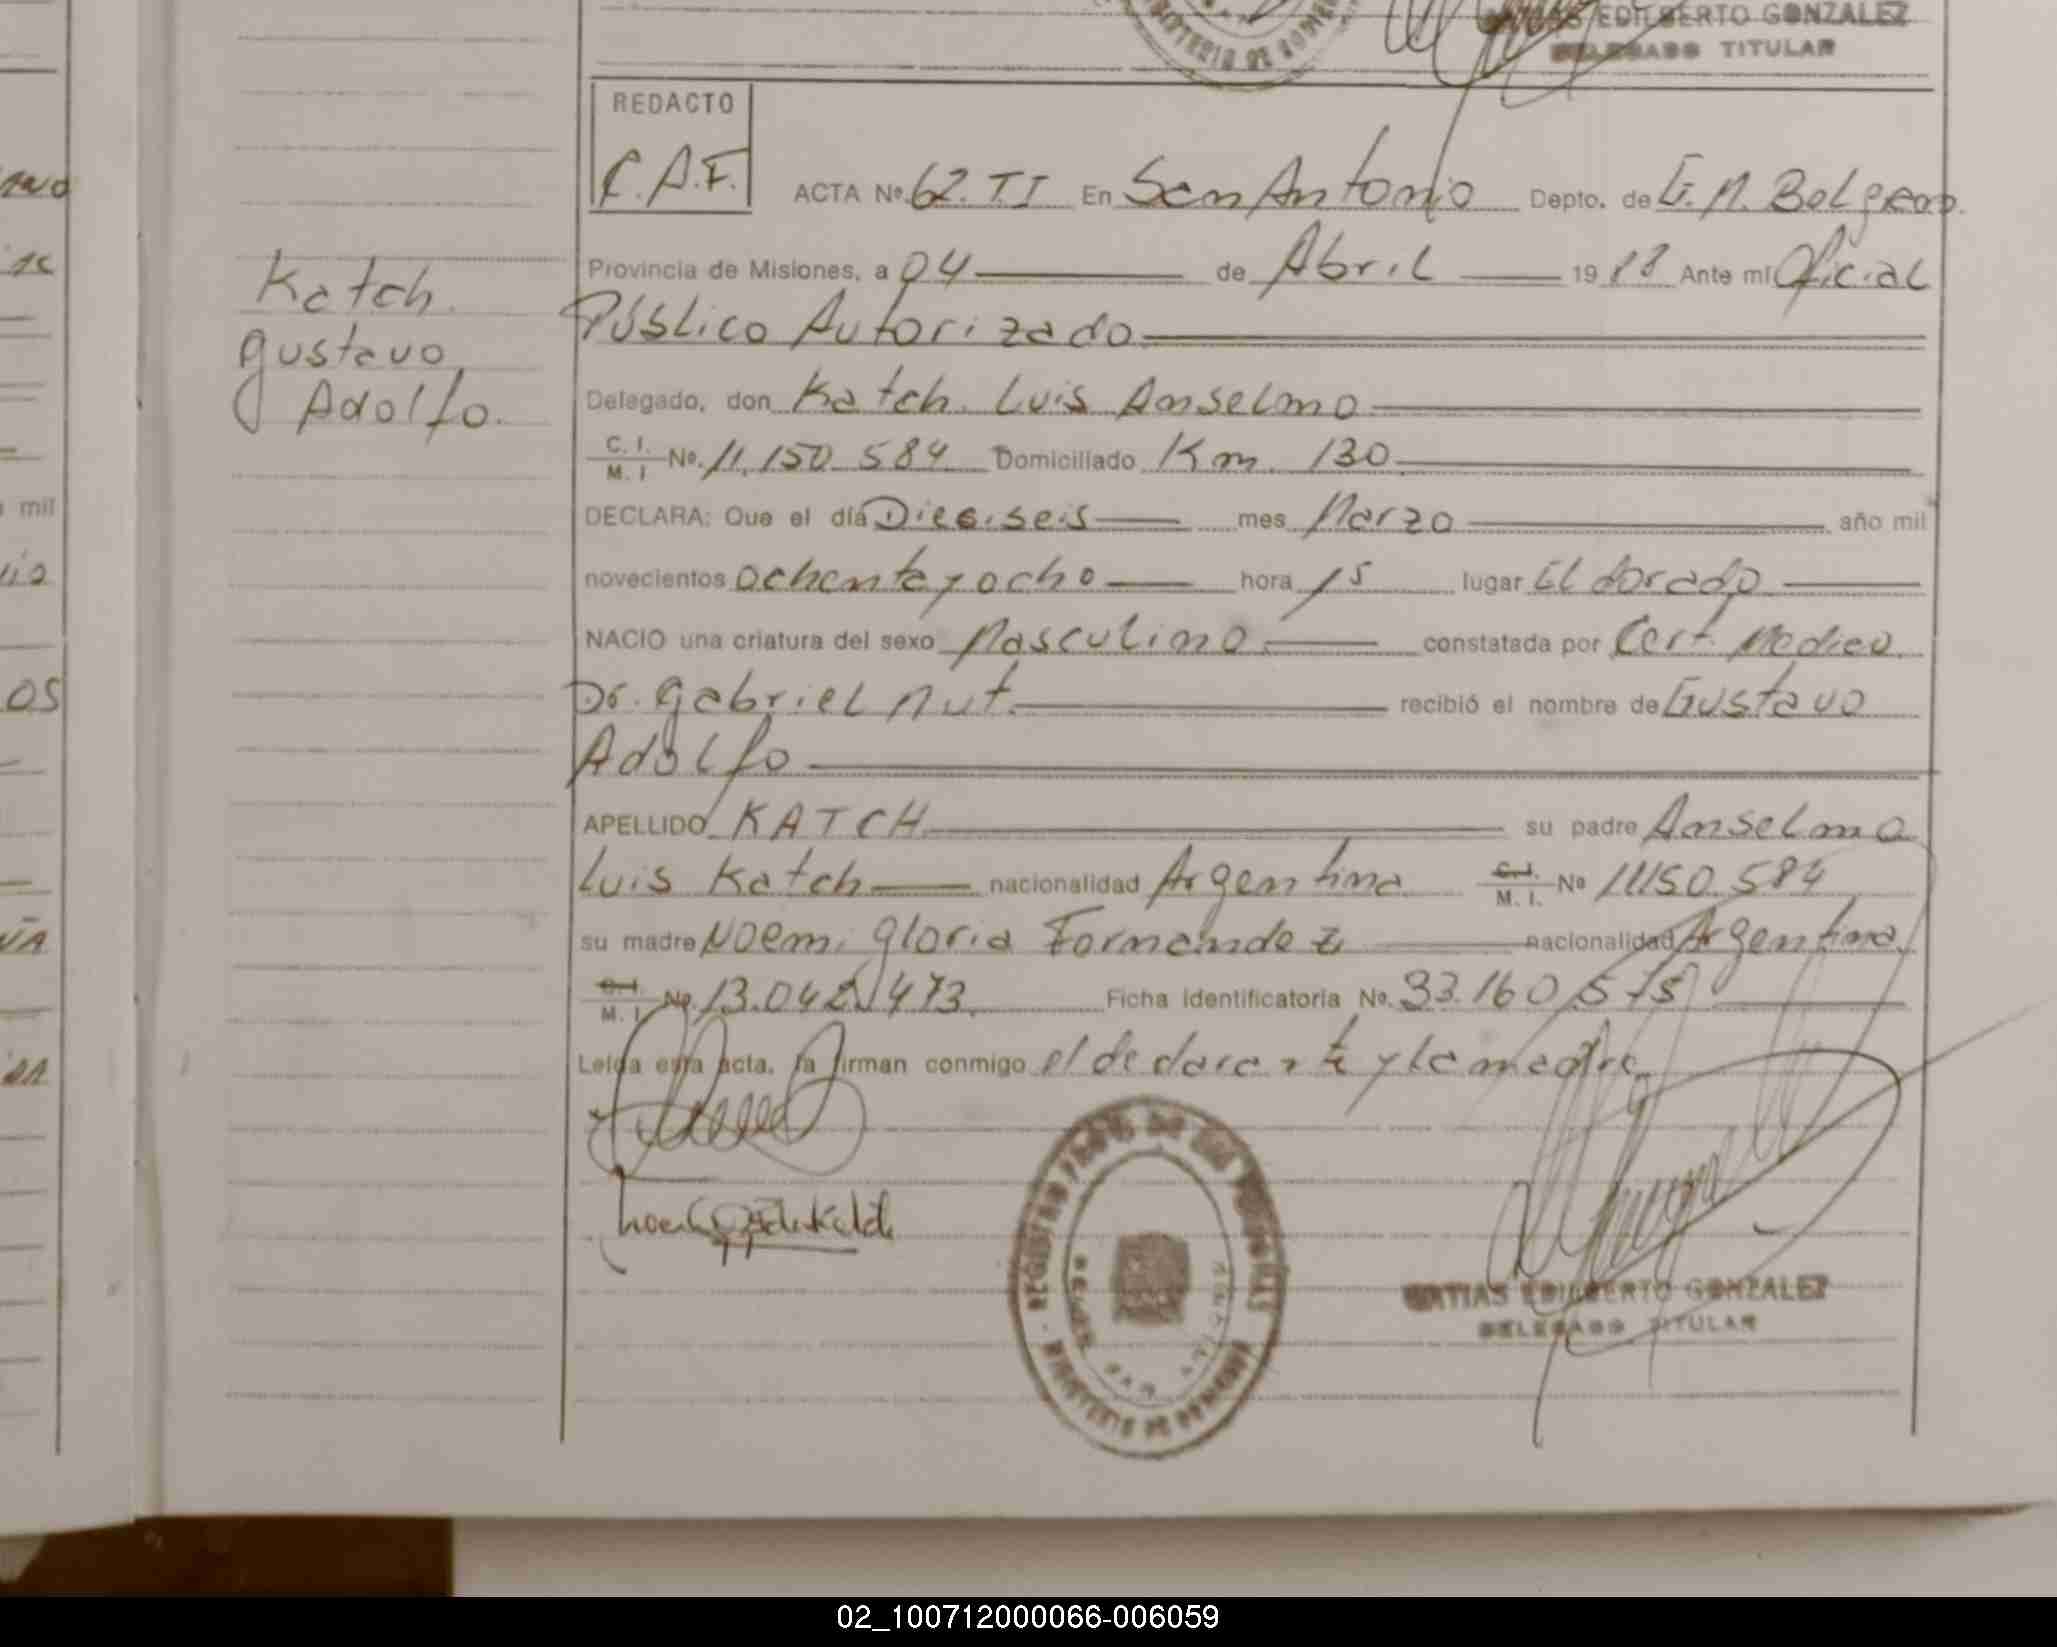 MATIAS EDILBERTO GONZALEZ
DELEGADO TITULAR
REDACTO
C.A.F.
ACTA Nº. 62. TI En San Antonio Depto. de G. M. Belgrano.
Provincia de Misiones, a 04 de Abril 1988 Ante mí Oficial
Público Autorizado
Katch.
Gustavo
Adolfo.
Delegado, don Katch. Luis Anselmo
C. I.
M. I Nº. 11.150.584 Domiciliado Km. 130
DECLARA: Que el día Dieciseis mes Marzo año mil
novecientos ochenta y ocho hora 15 lugar Eldorado
NACIO una criatura del sexo Masculino constatada por Cert. Medico.
Dr. Gabriel Nut. recibió el nombre de Gustavo
Adolfo
APELLIDO KATCH su padre Anselmo
Luis Katch nacionalidad Argentina C.I. M. I. Nº 11150.584
su madre Noemi Gloria Fernandez nacionalidad Argentina.
C.I. M. I Nº. 13.042.473. Ficha identificatoria Nº. 33.160.575
Leída esta acta, la firman conmigo el declarante y la madre.
REGISTRO PROV. DE LAS PERSONAS
MINISTERIO DE GOBIERNO
MATIAS EDILBERTO GONZALEZ
DELEGADO TITULAR
02_100712000066-006059